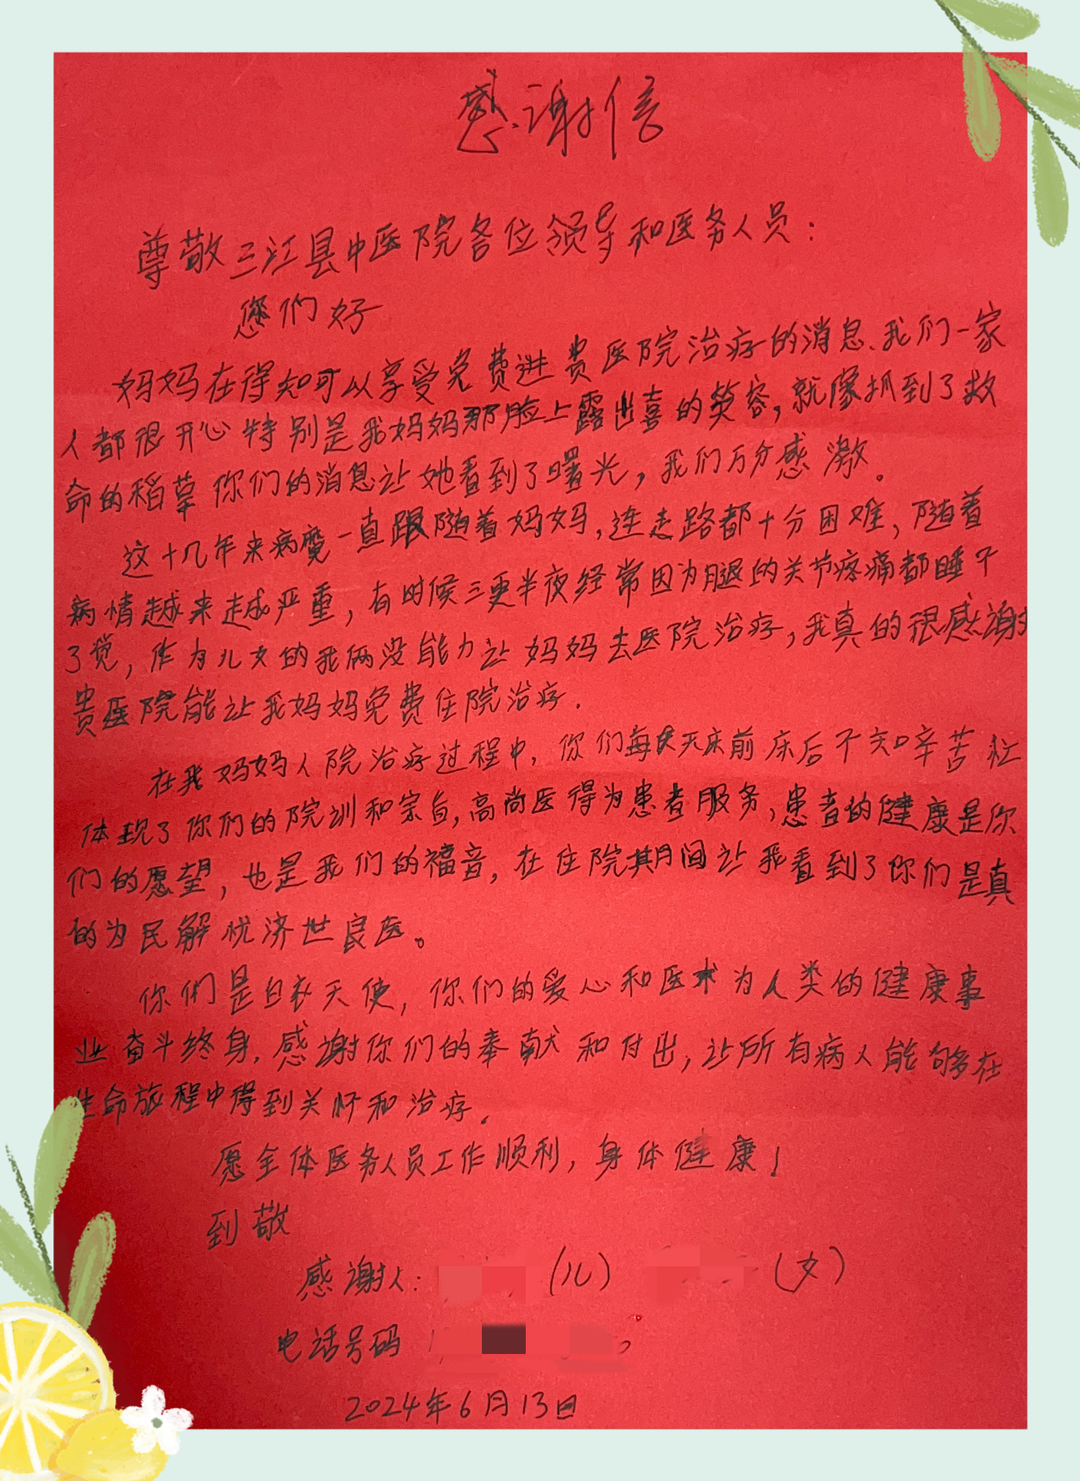 感谢信
尊敬三江县中医院各位领导和医务人员：
您们好
妈妈在得知可以享受免费进贵医院治疗的消息、我们一家
人都很开心特别是我妈妈那脸上露出喜的笑容，就像抓到了救
命的稻草你们的消息让她看到了曙光，我们万分感激。
这十几年来病魔一直跟随着妈妈，连走路都十分困难，随着
病情越来越严重，有时候三更半夜经常因为腿的关节疼痛都睡不
了觉，作为儿女的我俩没能力让妈妈去医院治疗，我真的很感谢
贵医院能让我妈妈免费住院治疗.
在我妈妈入院治疗过程中，你们每天床前床后不知辛苦
体现了你们的院训和宗旨，高尚医得为患者服务，患者的健康是你
们的愿望，也是我们的福音，在住院其月间让我看到了你们是真
的为民解忧济世良医。
你们是白衣天使，你们的爱心和医术为人类的健康事
业奋斗终身.感谢你们的奉献和付出，让所有病人能够在
生命旅程中得到关怀和治疗.
愿全体医务人员工作顺利，身体健康！
到敬
感谢人： （儿） （女）
电话号码
2024年6月13日